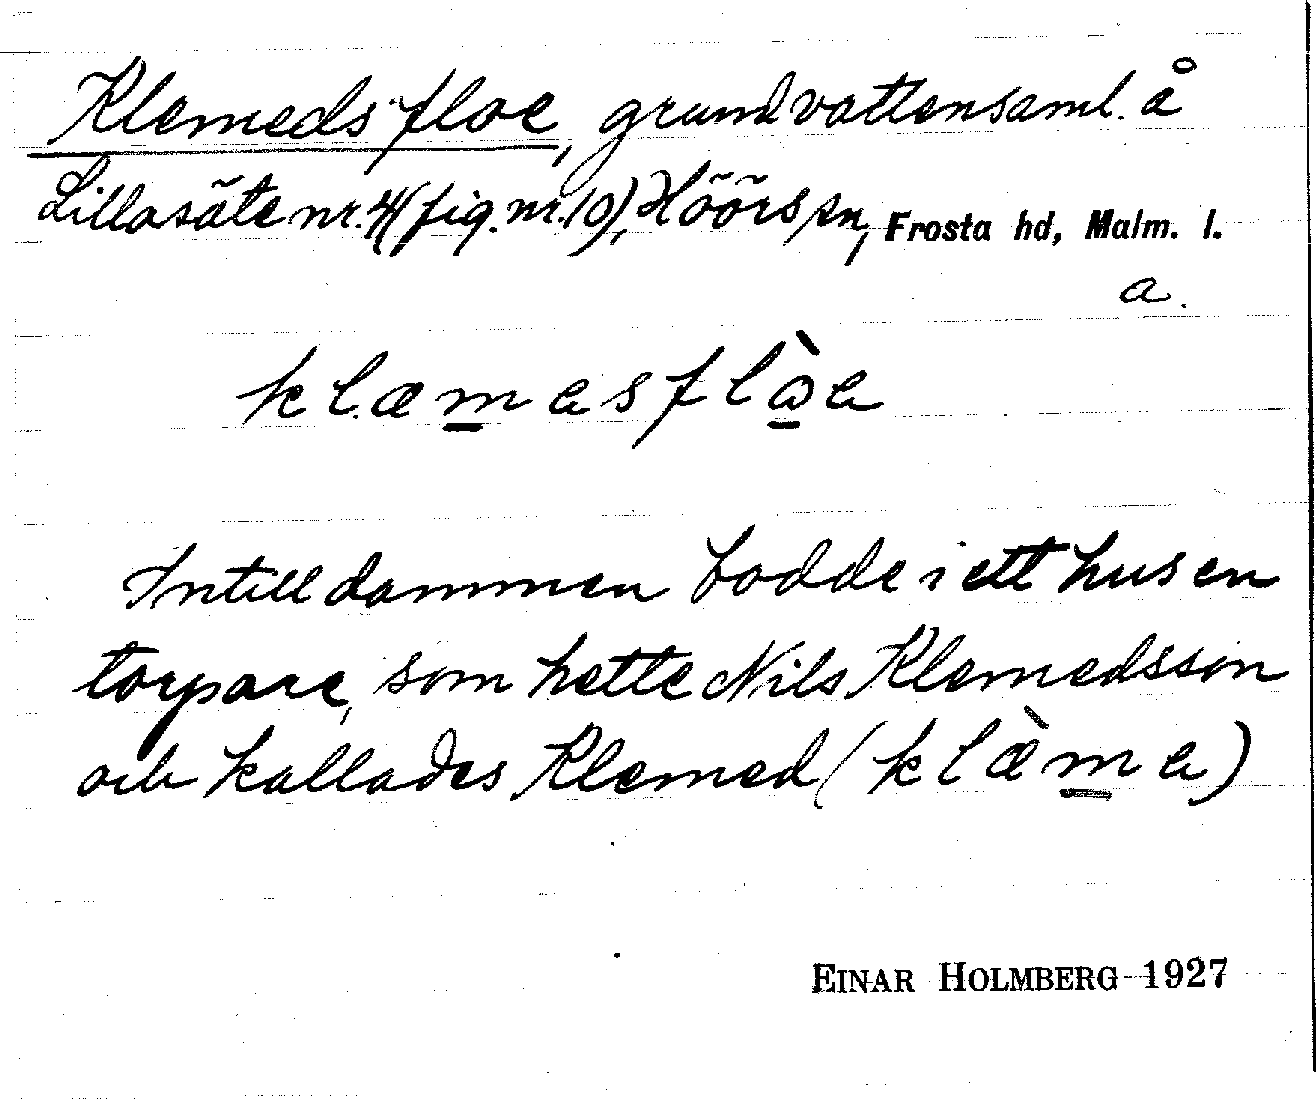 Klemedsfloe, grundvattensaml. å
Lillasäte nr. 4 (fig. nr. 10), Höörs sn, Frosta hd, Malm. l.
a.
klæmasflòa
Intill dammen bodde i ett hus en
torpare, som hette Nils Klemedsson
och kallades Klemed (klæ̀ma)
EINAR HOLMBERG 1927